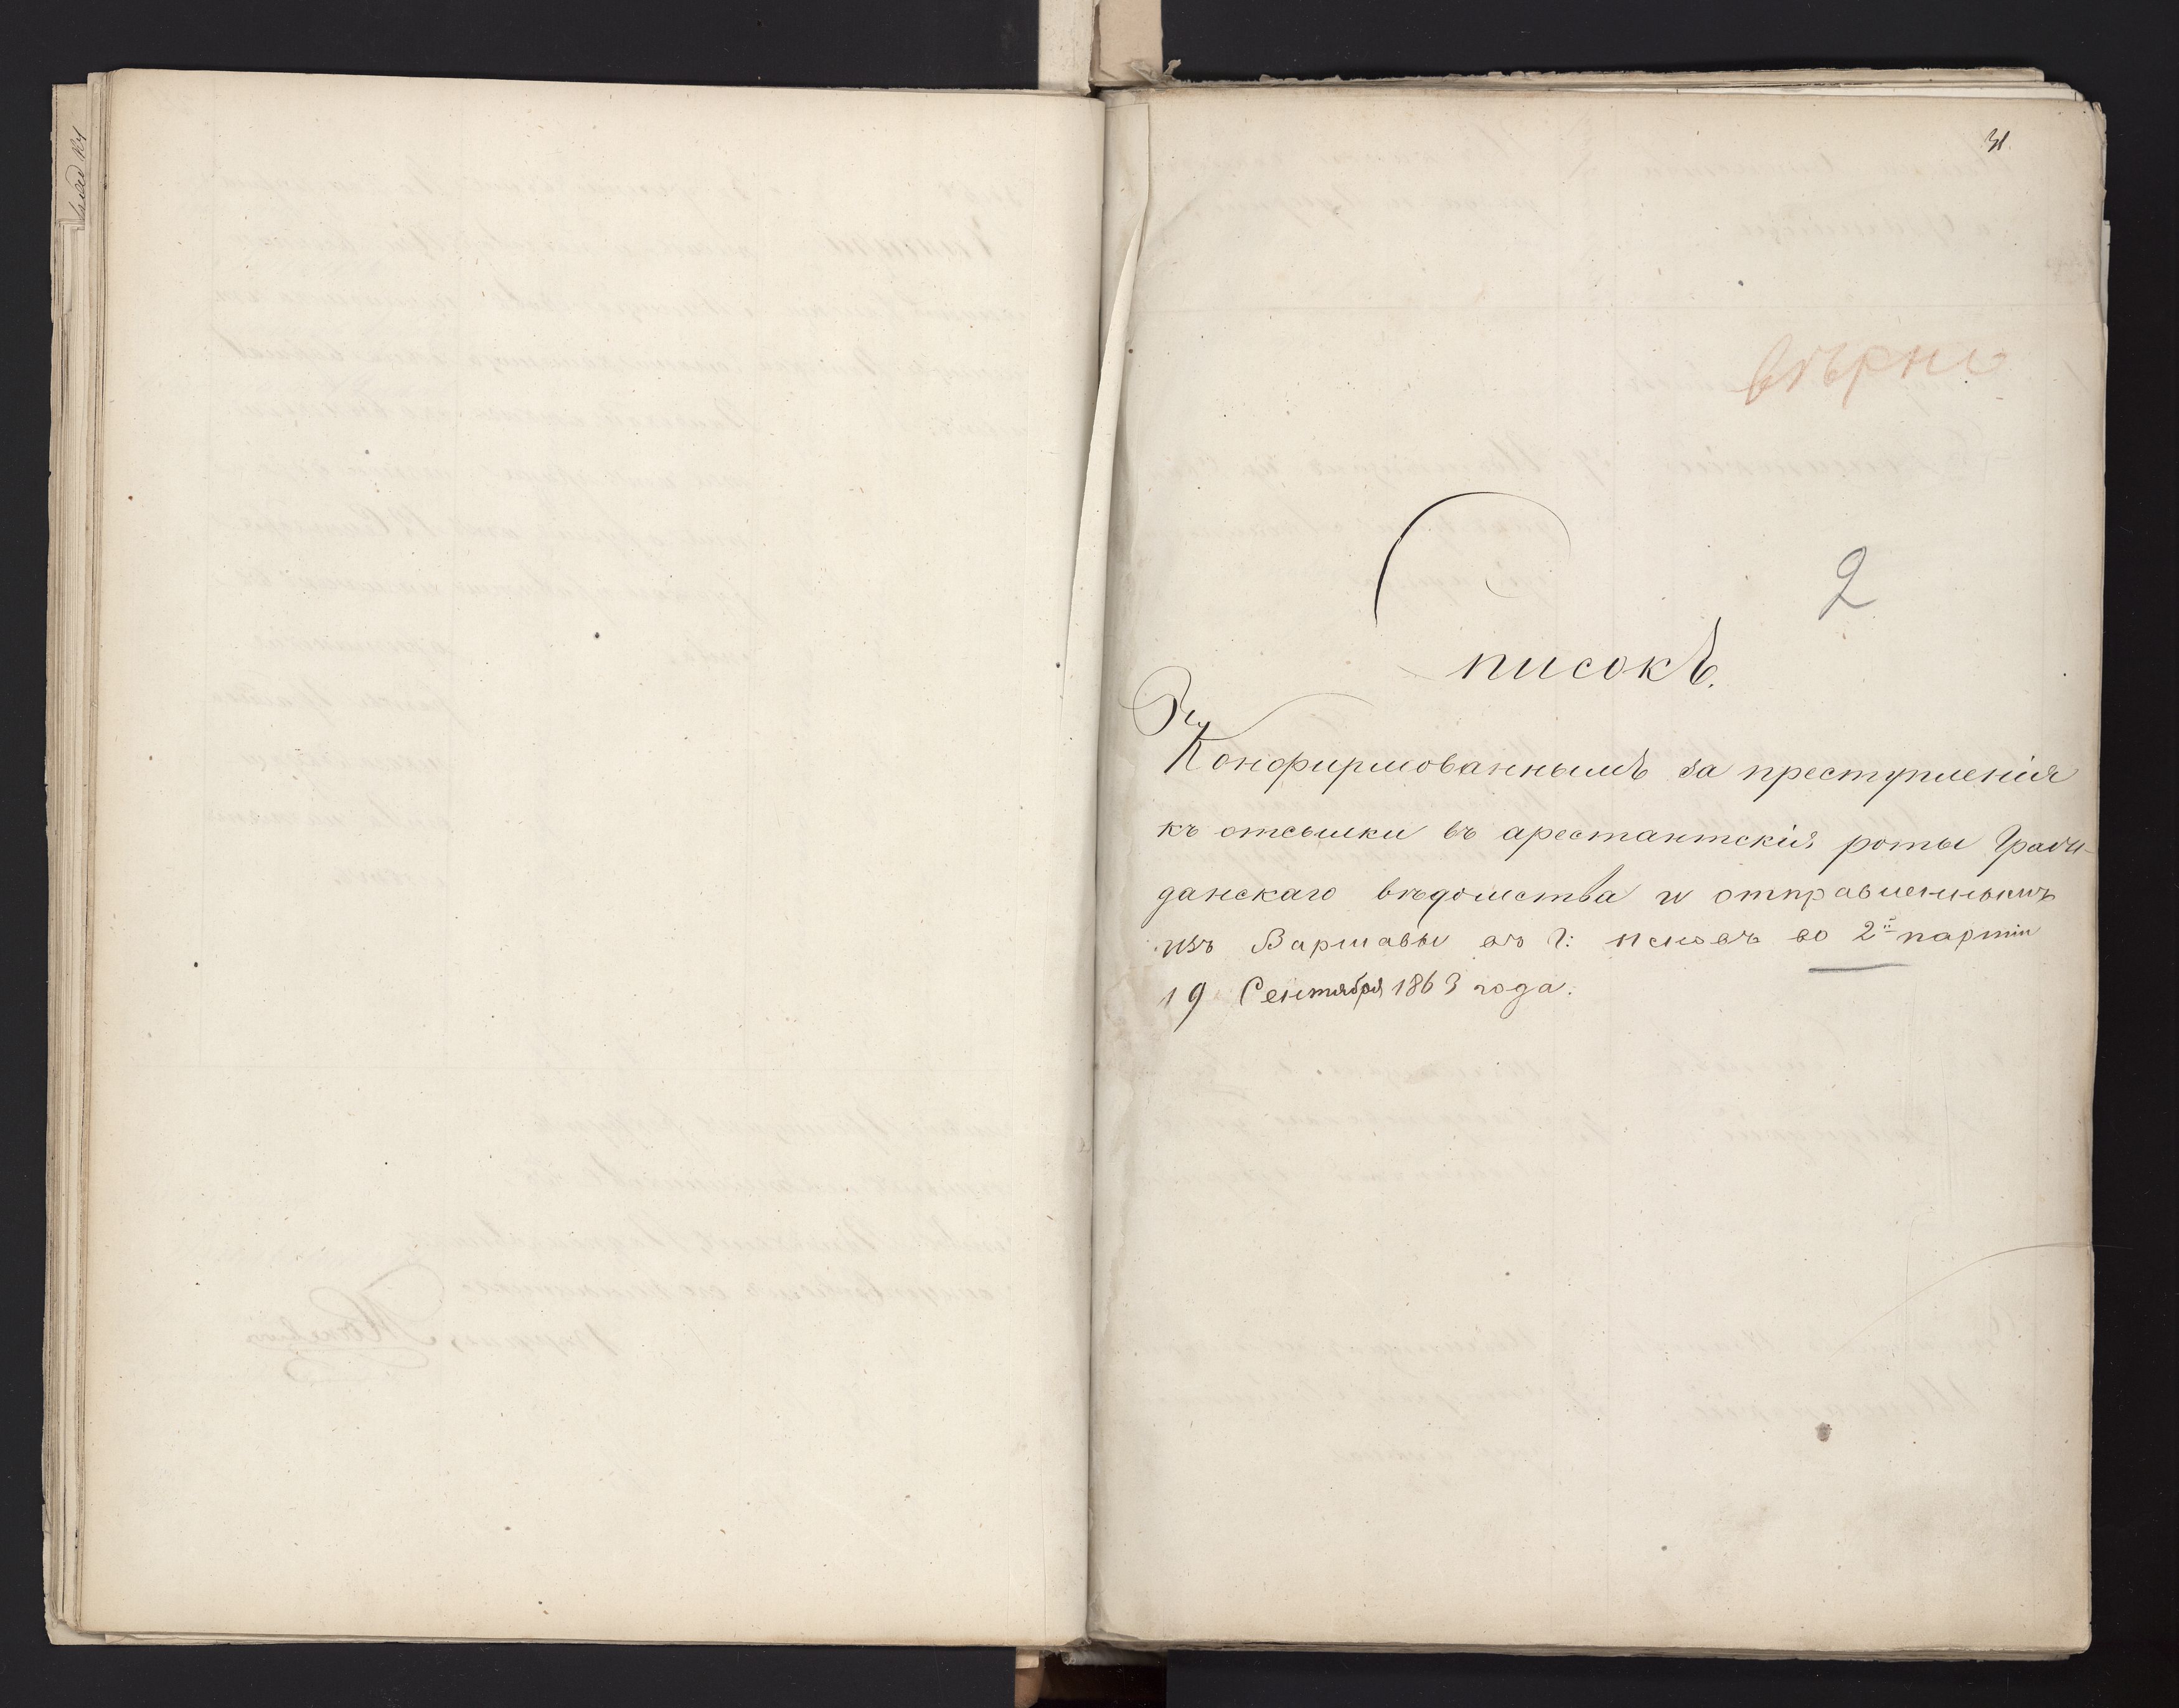 31.
вѣрно
2
Списокъ.
Конфирмованнымъ за преступленія
къ отсылки въ арестантскія роты Граж-
данскаго вѣдомства и отправленнымъ
изъ Варшавы въ г: Псковъ во 2й партіи
19 Сентября 1863 года.